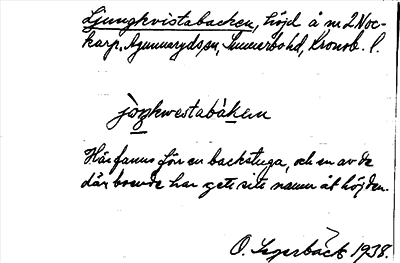 Ljungkvistabacken, höjd å nr 2 Noc-
karp, Agunnaryds sn, Sunnerbo hd, Kronob. l.
jòŋkwestabàkən
Här fanns förr en backstuga, och en av de
där boende har gett sitt namn åt höjden.
O. Sagerbäck 1938.